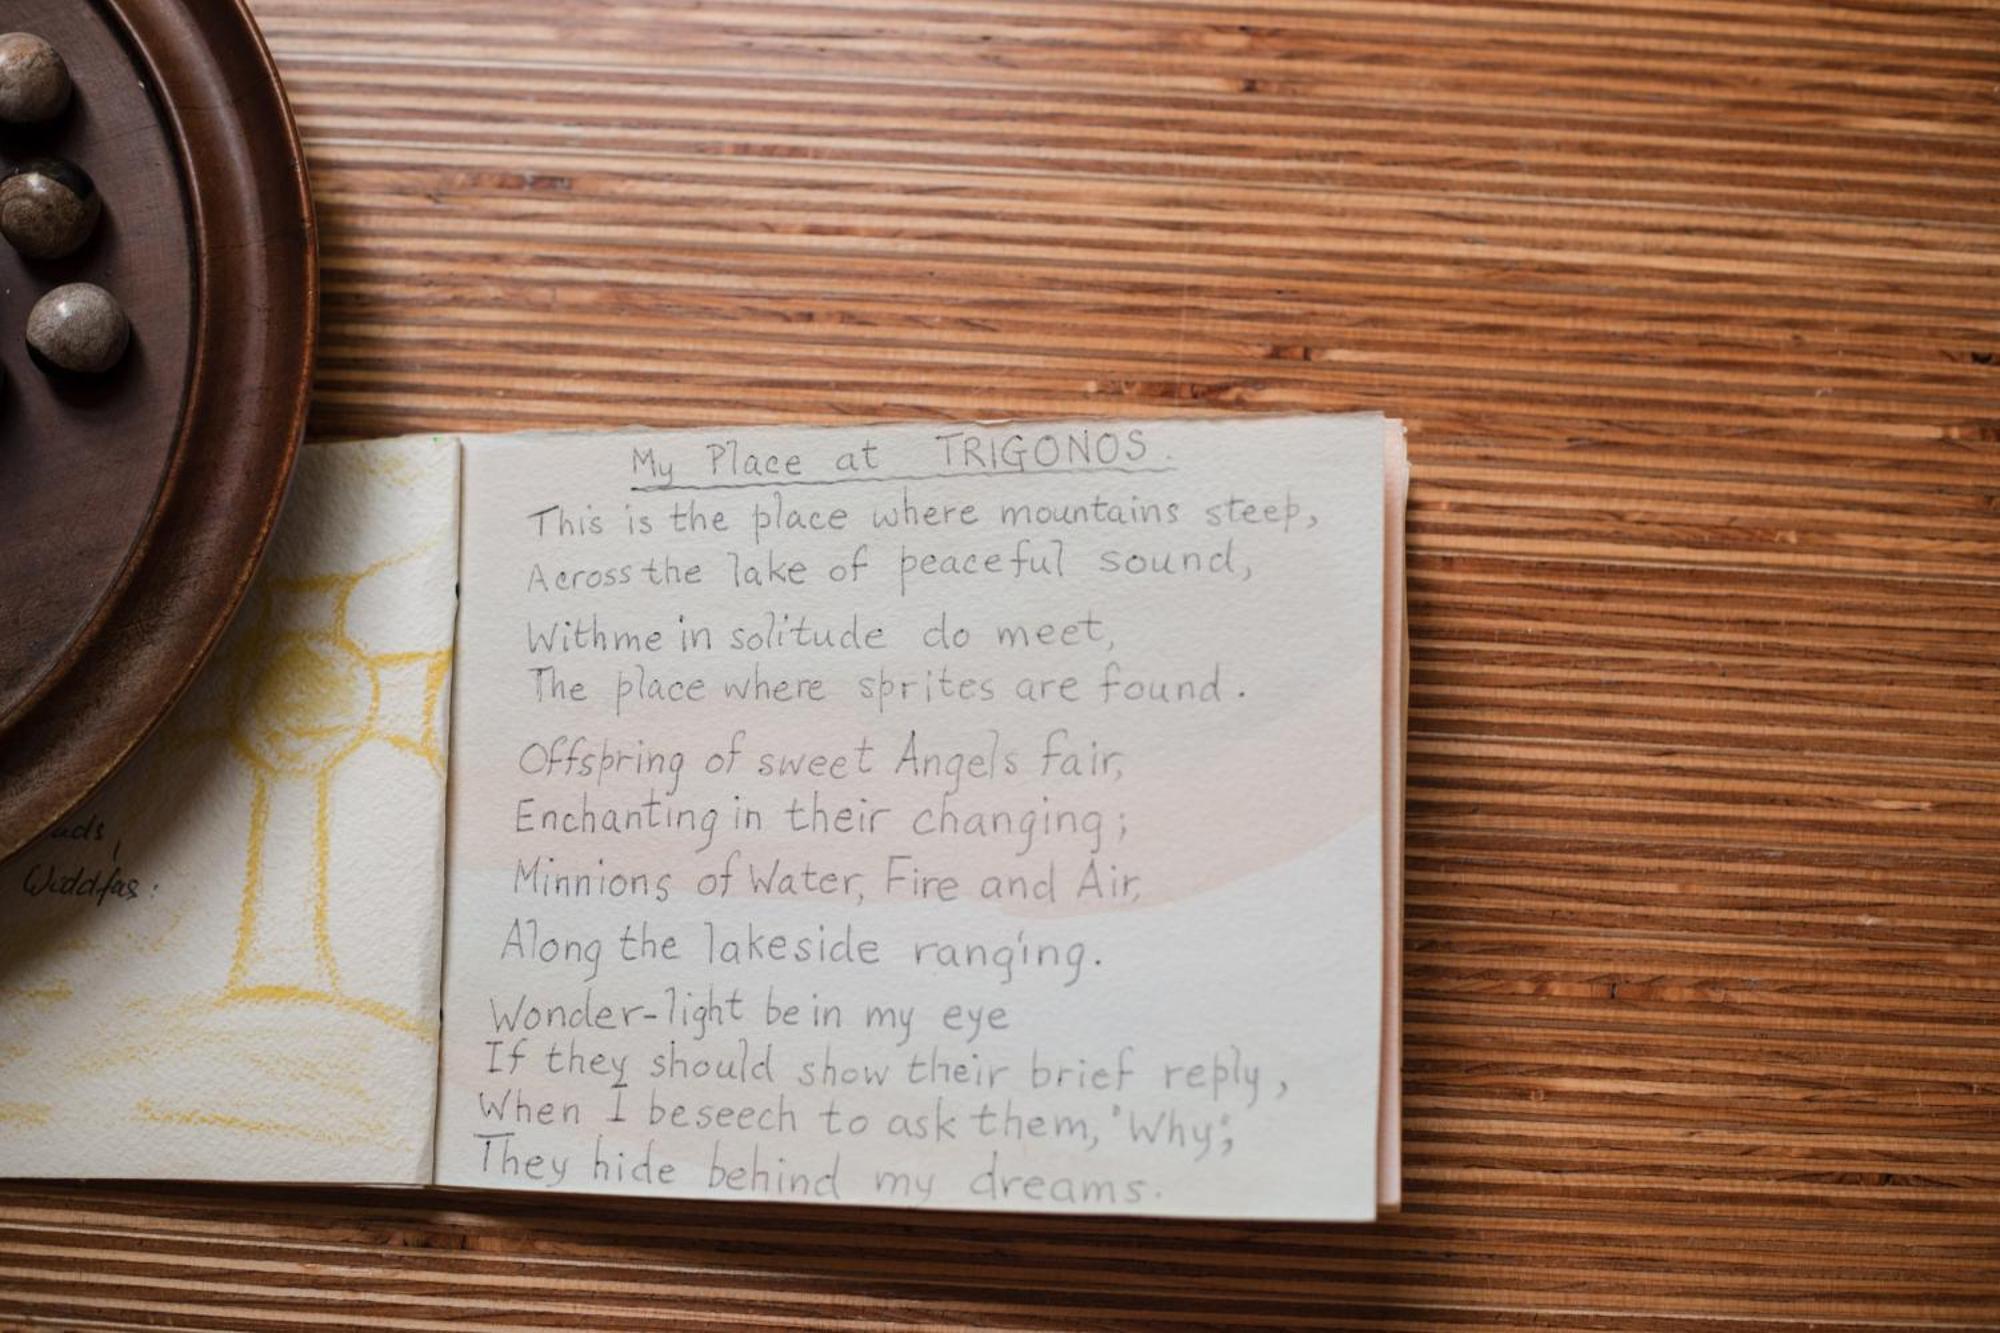 uds,
Widdfas:
My Place at TRIGONOS.
This is the place where mountains steep,
Across the lake of peaceful sound,
With me in solitude do meet,
The place where sprites are found.
Offspring of sweet Angels fair,
Enchanting in their changing;
Minnions of Water, Fire and Air,
Along the lakeside ranging.
Wonder-light be in my eye
If they should show their brief reply,
When I beseech to ask them, 'Why';
They hide behind my dreams.